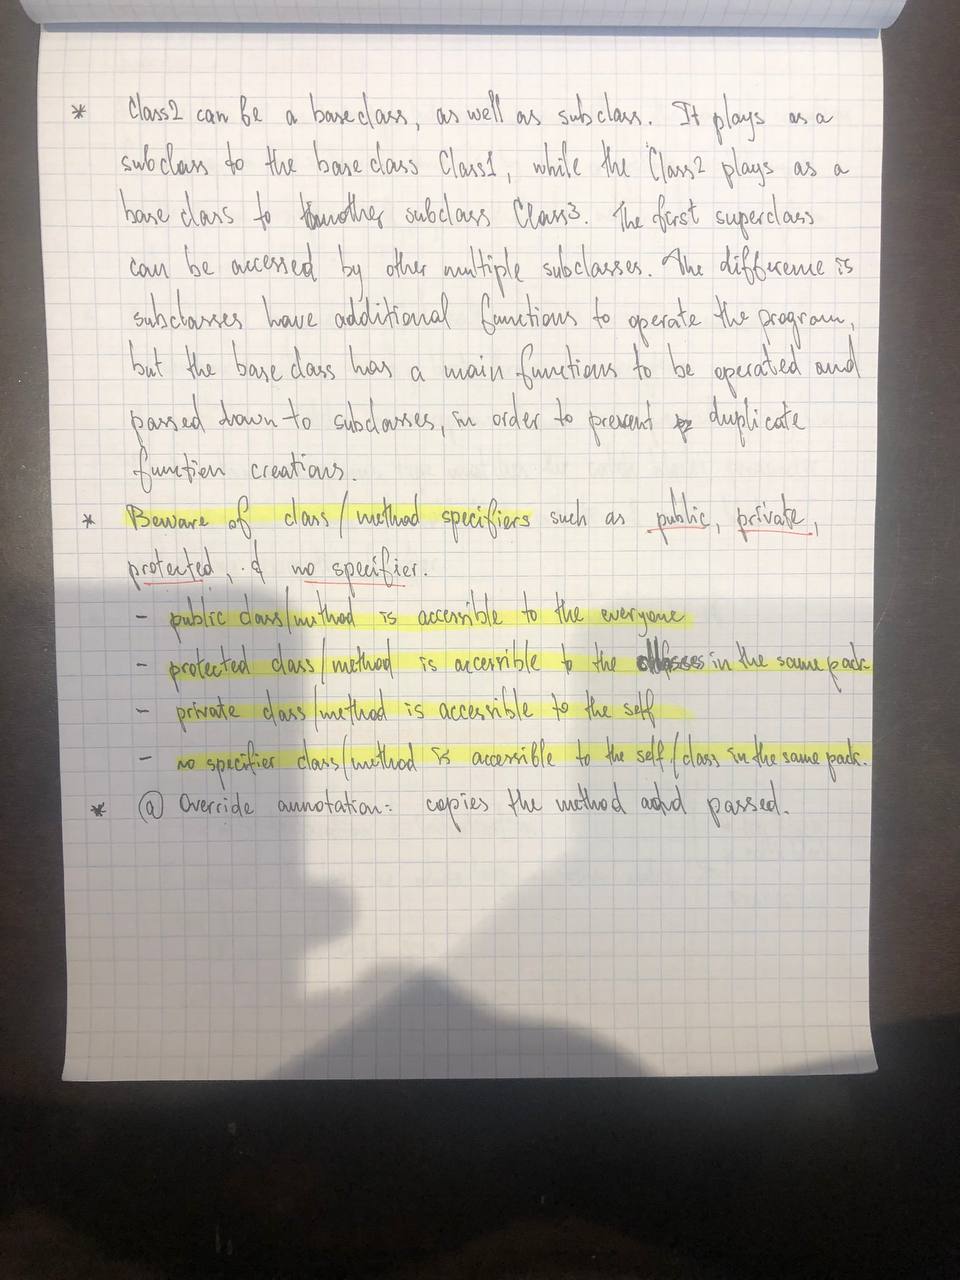 * Class2 can be a base class, as well as subclass. It plays as a
subclass to the base class Class1, while the Class2 plays as a
base class to another subclass Class3. The first superclass
can be accessed by other multiple subclasses. The difference is
subclasses have additional functions to operate the program,
but the base class has a main functions to be operated and
passed down to subclasses, in order to prevent duplicate
function creations.
* Beware of class/method specifiers such as public, private,
protected, & no specifier.
- public class/method is accessible to the everyone
- protected class/method is accessible to the classes in the same pack
- private class/method is accessible to the self
- no specifier class/method is accessible to the self/class in the same pack.
* @ Override annotation: copies the method and passed.